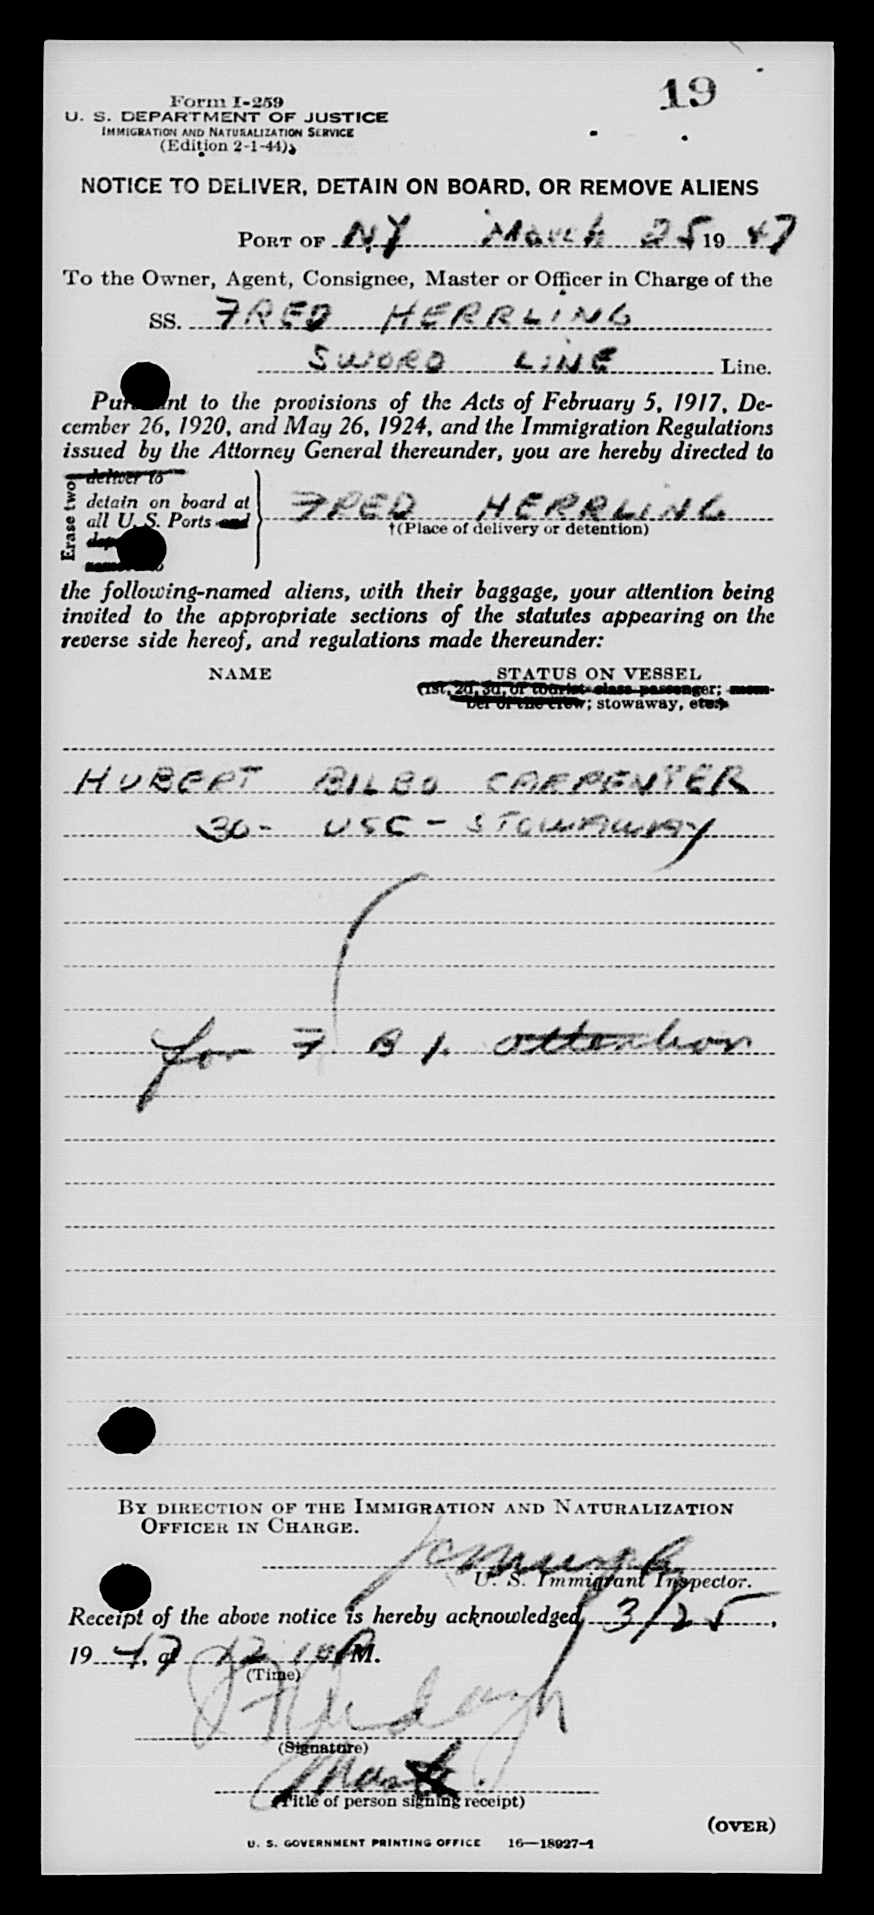 19
Form I-259
U. S. DEPARTMENT OF JUSTICE
IMMIGRATION AND NATURALIZATION SERVICE
(Edition 2-1-44)
NOTICE TO DELIVER, DETAIN ON BOARD, OR REMOVE ALIENS
PORT OF NY March 25 19 47
To the Owner, Agent, Consignee, Master or Officer in Charge of the
SS. FRED HERRLING
SWORD LINE Line.
Pursuant to the provisions of the Acts of February 5, 1917, De-
cember 26, 1920, and May 26, 1924, and the Immigration Regulations
issued by the Attorney General thereunder, you are hereby directed to
Erase two
deliver to
detain on board at
all U. S. Ports and
FRED HERRLING
†(Place of delivery or detention)
the following-named aliens, with their baggage, your attention being
invited to the appropriate sections of the statutes appearing on the
reverse side hereof, and regulations made thereunder:
NAME STATUS ON VESSEL
(1st, 2d, 3d, or tourist-class passenger; mem-
ber of the crew; stowaway, etc.)
HUBERT BILBO CARPENTER
30 - USC - STOWAWAY
for F. B I. attention
BY DIRECTION OF THE IMMIGRATION AND NATURALIZATION
OFFICER IN CHARGE.
U. S. Immigrant Inspector.
Receipt of the above notice is hereby acknowledged 3/25,
19 47, at 12 10 P M.
(Time)
(Signature)
(Title of person signing receipt)
(OVER)
U. S. GOVERNMENT PRINTING OFFICE 16—18927-1